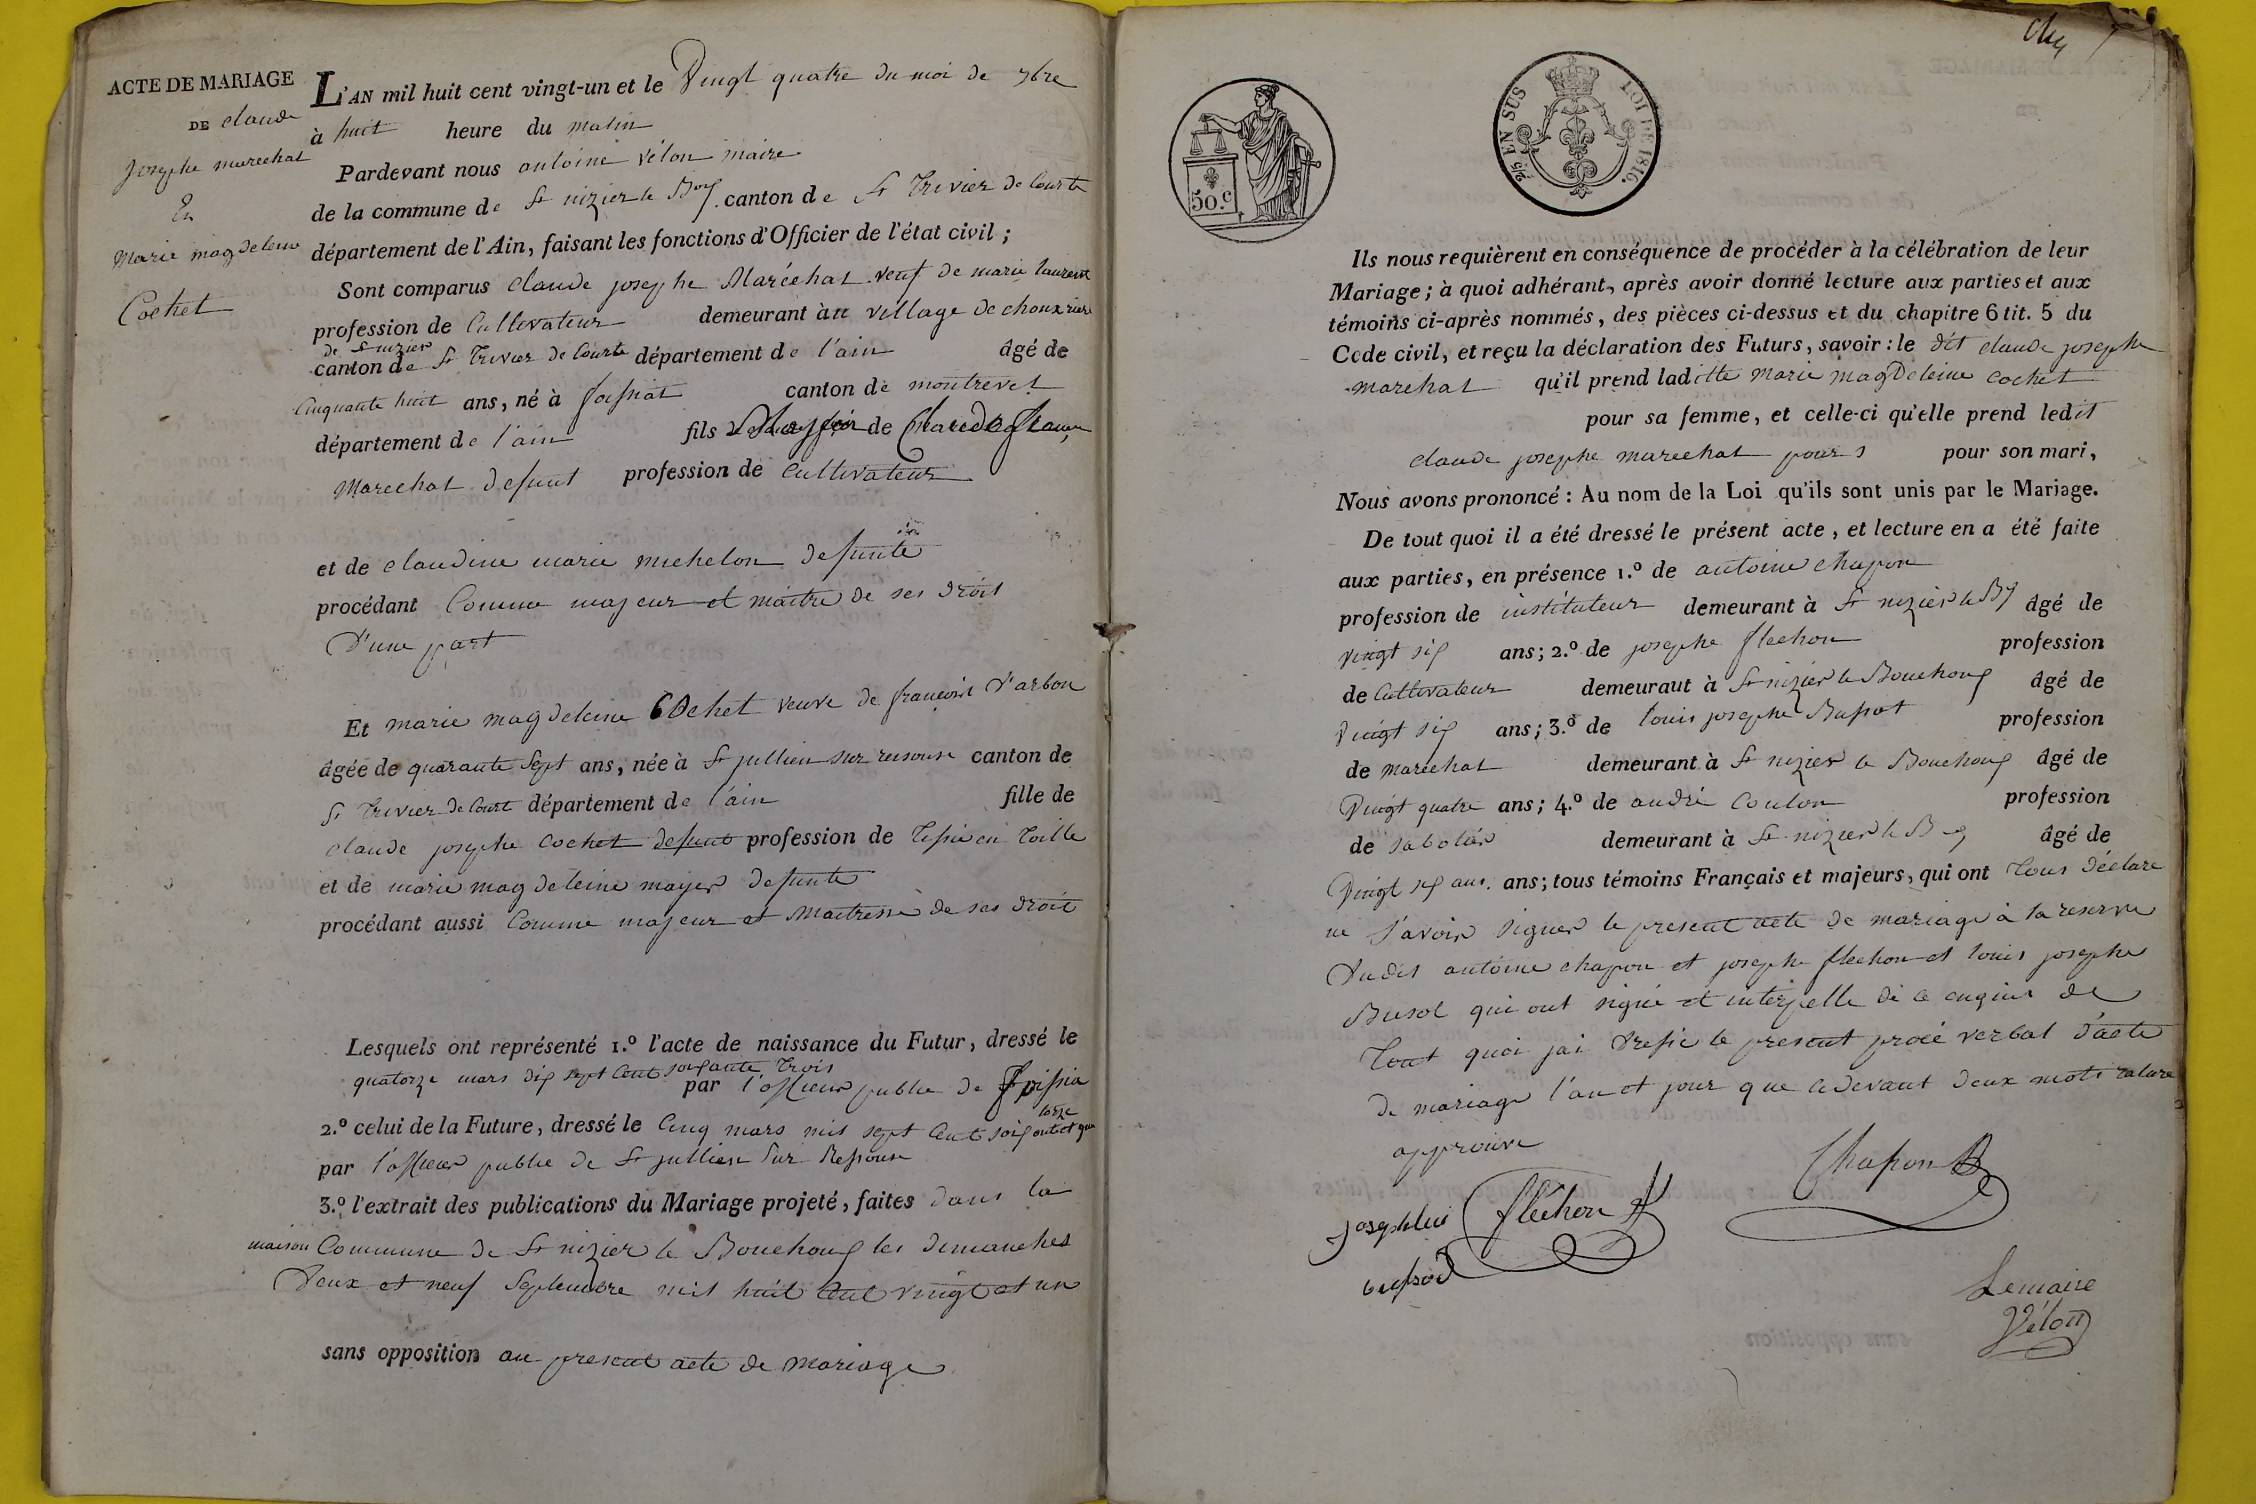 ACTE DE MARIAGE
DE claude
Josephe marechal
En
Marie magdeleine
Cochet
L'AN mil huit cent vingt-un et le Vingt quatre du moi de 7bre
à huit heure du matin
Pardevant nous antoine vélon maire
de la commune de St nizier le Boug. canton de St Trivier de Courte
département de l'Ain, faisant les fonctions d'Officier de l'état civil ;
Sont comparus Claude josephe Maréchal veuf de marie laurent
profession de Cultivateur demeurant àu village de
de St nizier
canton de St Trivier de Courte département de l'ain âgé de
Cinquante huit ans, né à foissiat canton de montrevel
département de l'ain fils de
Marechal defunt profession de Cultivateur
et de Claudine marie michelon defunte
procédant Comme majeur et maitre de ses droit
D'une part
Et marie magdeleine COchet veuve de françois Varbon
âgée de quarante sept ans, née à St jullien sur resouse canton de
St Trivier de Court département de l'ain fille de
claude josephe Cochet defunt profession de Tissié en toille
et de marie magdeleine mayer defunte
procédant aussi Comme majeur et Maitresse de ses droit
Lesquels ont représenté 1.º l'acte de naissance du Futur, dressé le
quatorze mars dix sept Cent soixante Trois
par l'officier publie de foissia
2.º celui de la Future, dressé le Cinq mars mil sept Cent soixantet qua
torze
par l'officier publie de St jullien Sur Ressouse
3.º l'extrait des publications du Mariage projeté, faites dans la
maison Commune de St nizier le Bouchoux les dimanches
Deux et neuf Septembre mil huit Cent vingt et un
sans opposition au present acte de mariage
50.c
2/5 EN SUS
LOI DE 1816.
Ils nous requièrent en conséquence de procéder à la célébration de leur
Mariage ; à quoi adhérant, après avoir donné lecture aux parties et aux
témoins ci-après nommés, des pièces ci-dessus et du chapitre 6 tit. 5 du
Code civil, et reçu la déclaration des Futurs, savoir : le dit claude josephe
marehal qu'il prend laditte marie magdeleine cochet
pour sa femme, et celle-ci qu'elle prend ledit
claude josephe marechal pour pour son mari,
Nous avons prononcé : Au nom de la Loi qu'ils sont unis par le Mariage.
De tout quoi il a été dressé le présent acte, et lecture en a été faite
aux parties, en présence 1.º de antoine chapon
profession de instituteur demeurant à St nizier le Bx âgé de
vingt six ans ; 2.º de josephe flechon profession
de Cultivateur demeuraut à St nizier le Bouchoux âgé de
Vingt six ans ; 3.º de louis josephe Bussot profession
de marechal demeurant à St nizier le Bouchoux âgé de
Vingt quatre ans ; 4.º de andré Coulon profession
de sabotier demeurant à St nizier le B x âgé de
Vingt six ans. ans ; tous témoins Français et majeurs, qui ont Tous déclare
ne Savoir signer le present acte de mariage à la reserve
Dudit antoine chapon et josephe flechon et louis josephe
Busot qui ont signé et interpelle de
Tout quoi jai Dressé le present procé verbal d'acte
de mariage l'an et jour que cidevant deux mots rature
approuve
Chapon
fléchon
Joseph lui
bussot
Lemaire
Vélon